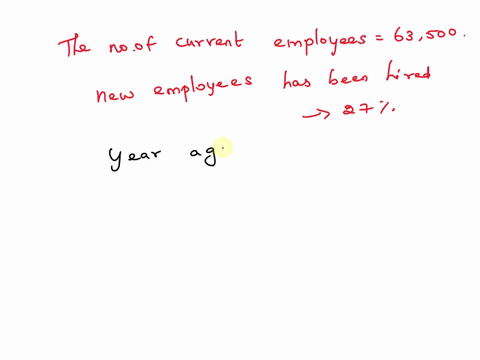 The no.of current employees = 63,500.
new employees has been hired
→ 27%.
Year ag